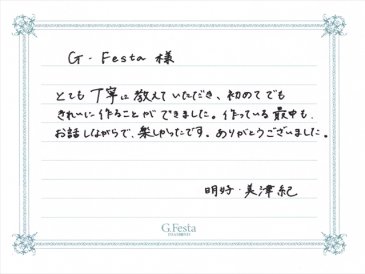 G・Festa 様
とても丁寧に教えていただき、初めてでも
きれいに作ることができました。作っている最中も、
お話しながらで、楽しかったです。ありがとうございました。
明好・美津紀
G.Festa